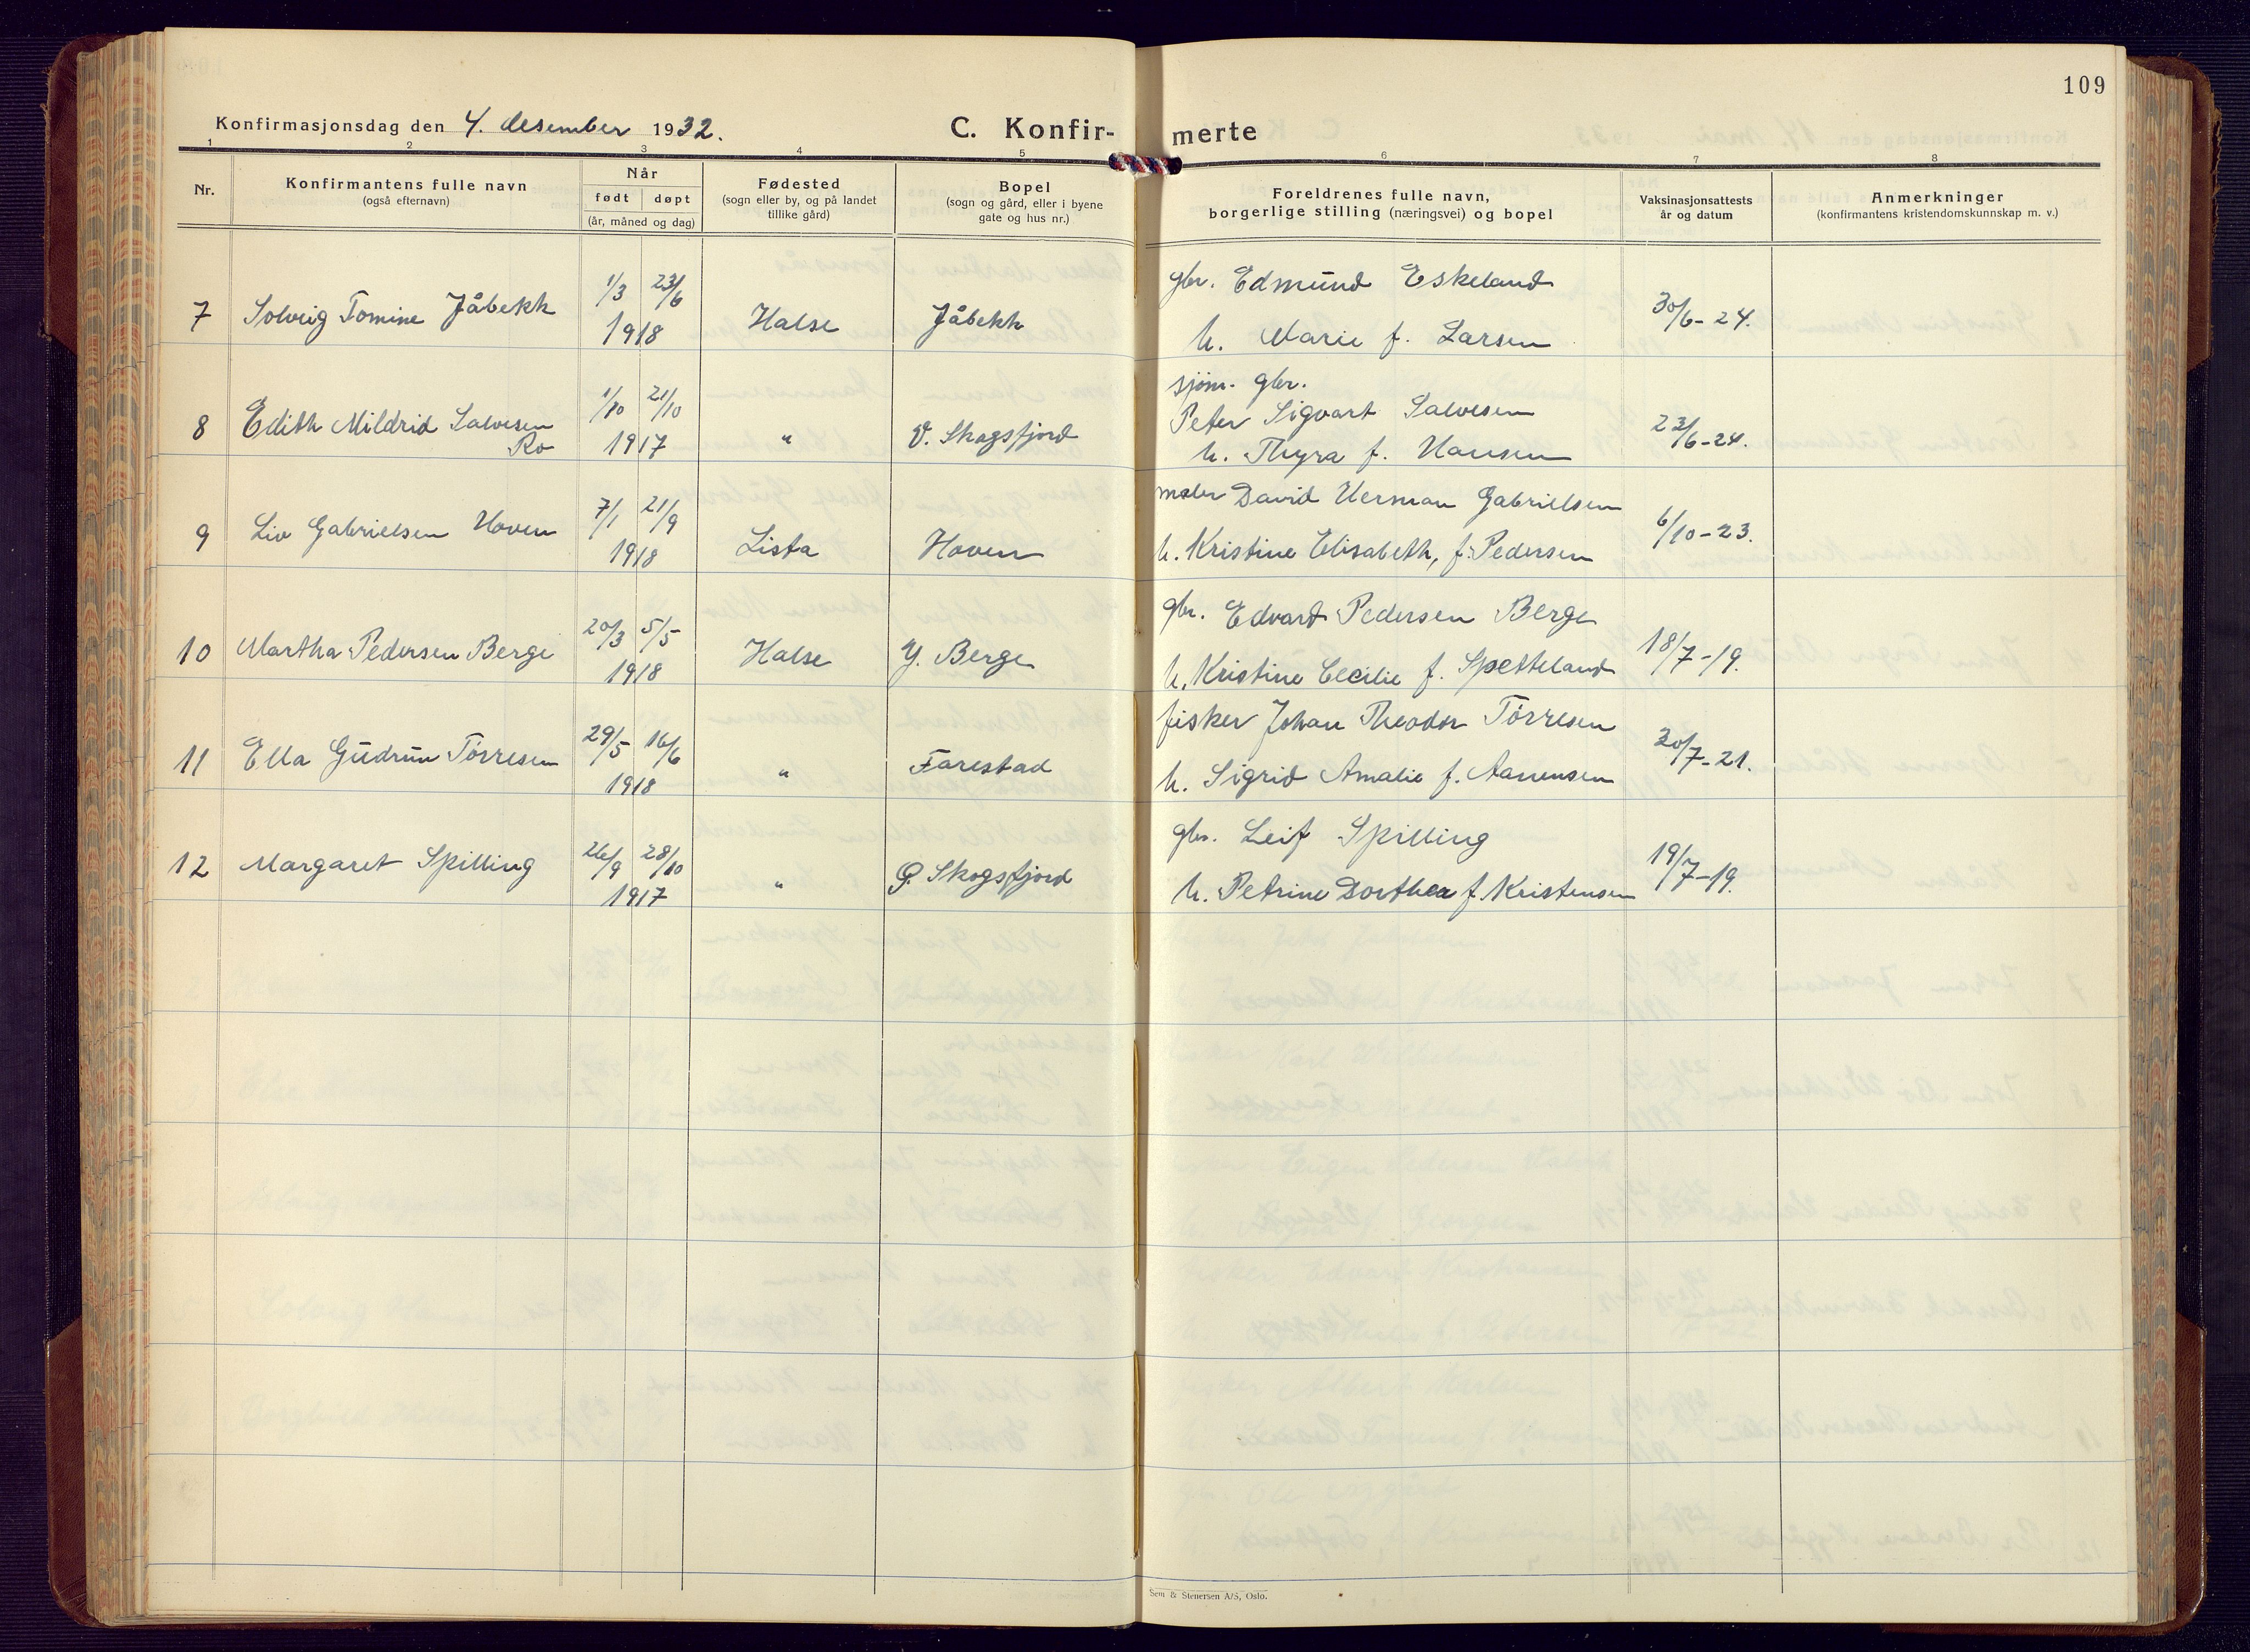 109
Konfirmasjonsdag den 4. desember 1932.
C. Konfir- merte
1 2 3 4 5 6 7 8
Nr.
Konfirmantens fulle navn
(også efternavn)
Når
født døpt
(år, måned og dag)
Fødested
(sogn eller by, og på landet
tillike gård)
Bopel
(sogn og gård, eller i byene
gate og hus nr.)
Foreldrenes fulle navn,
borgerlige stilling (næringsvei) og bopel
Vaksinasjonsattests
år og datum
Anmerkninger
(konfirmantens kristendomskunnskap m. v.)
gbr. Edmund Eskeland
7 Solveig Tomine Jåbekk 1/3 23/6 1918 Halse Jåbekk 30/6-24.
h. Marie f. Larsen
sjøm. gbr.
Peter Sigvart Salvesen
8 Edith Mildrid Salvesen 1/10 21/10 1917 " V. Skogsfjord 23/6-24.
Ro
h. Thyra f. Hansen
maler David Herman Gabrielsen
9 Liv Gabrielsen Hoven 7/1 21/9 1918 Lista Hoven 6/10-23.
h. Kristine Elisabeth, f. Pedersen
gbr. Edvard Pedersen Berge
10 Martha Pedersen Berge 20/3 5/5 1918 Halse Y. Berge 18/7-19.
h. Kristine Cecilie f. Spetteland
fisker Johan Theodor Tørresen
11 Ella Gudrun Tørresen 29/5 16/6 1918 " Farestad 20/7-21.
h. Sigrid Amalie f. Aanensen
gbr. Leif Spilling
12 Margaret Spilling 26/9 28/10 1917 " Ø. Skogsfjord 19/7-19.
h. Petrine Dorthea f. Kristensen
Sem & Stenersen A/S, Oslo.